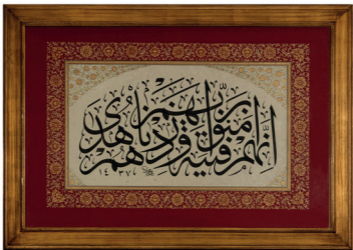 إنهم فتية آمنوا بربهم وزدناهم هدى
١٤٣٧